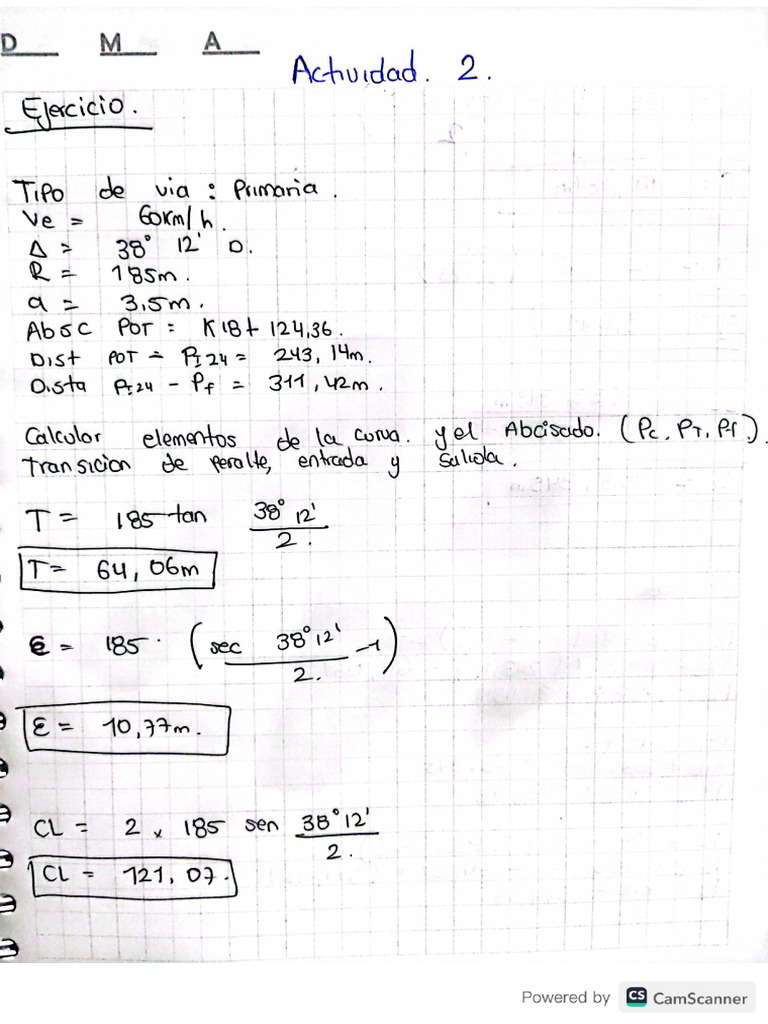 D M A
Actividad. 2.
Ejercicio.
Tipo de via : Primaria.
Ve = 60km/h.
Δ = 38° 12' D.
R = 185m.
a = 3,5m.
Absc POT = K18+124,36.
Dist POT - PI24 = 243,14m.
Dista PI24 - Pf = 311,42m.
Calcular elementos de la curva. y el Abcisado. (Pc, PT, Pf).
Transicion de peralte, entrada y salida.
T = 185 tan 38° 12' / 2.
T = 64,06m
E = 185. (sec 38° 12' / 2. -1)
E = 10,77m.
CL = 2 x 185 sen 38° 12' / 2.
CL = 121,07.
Powered by CS CamScanner